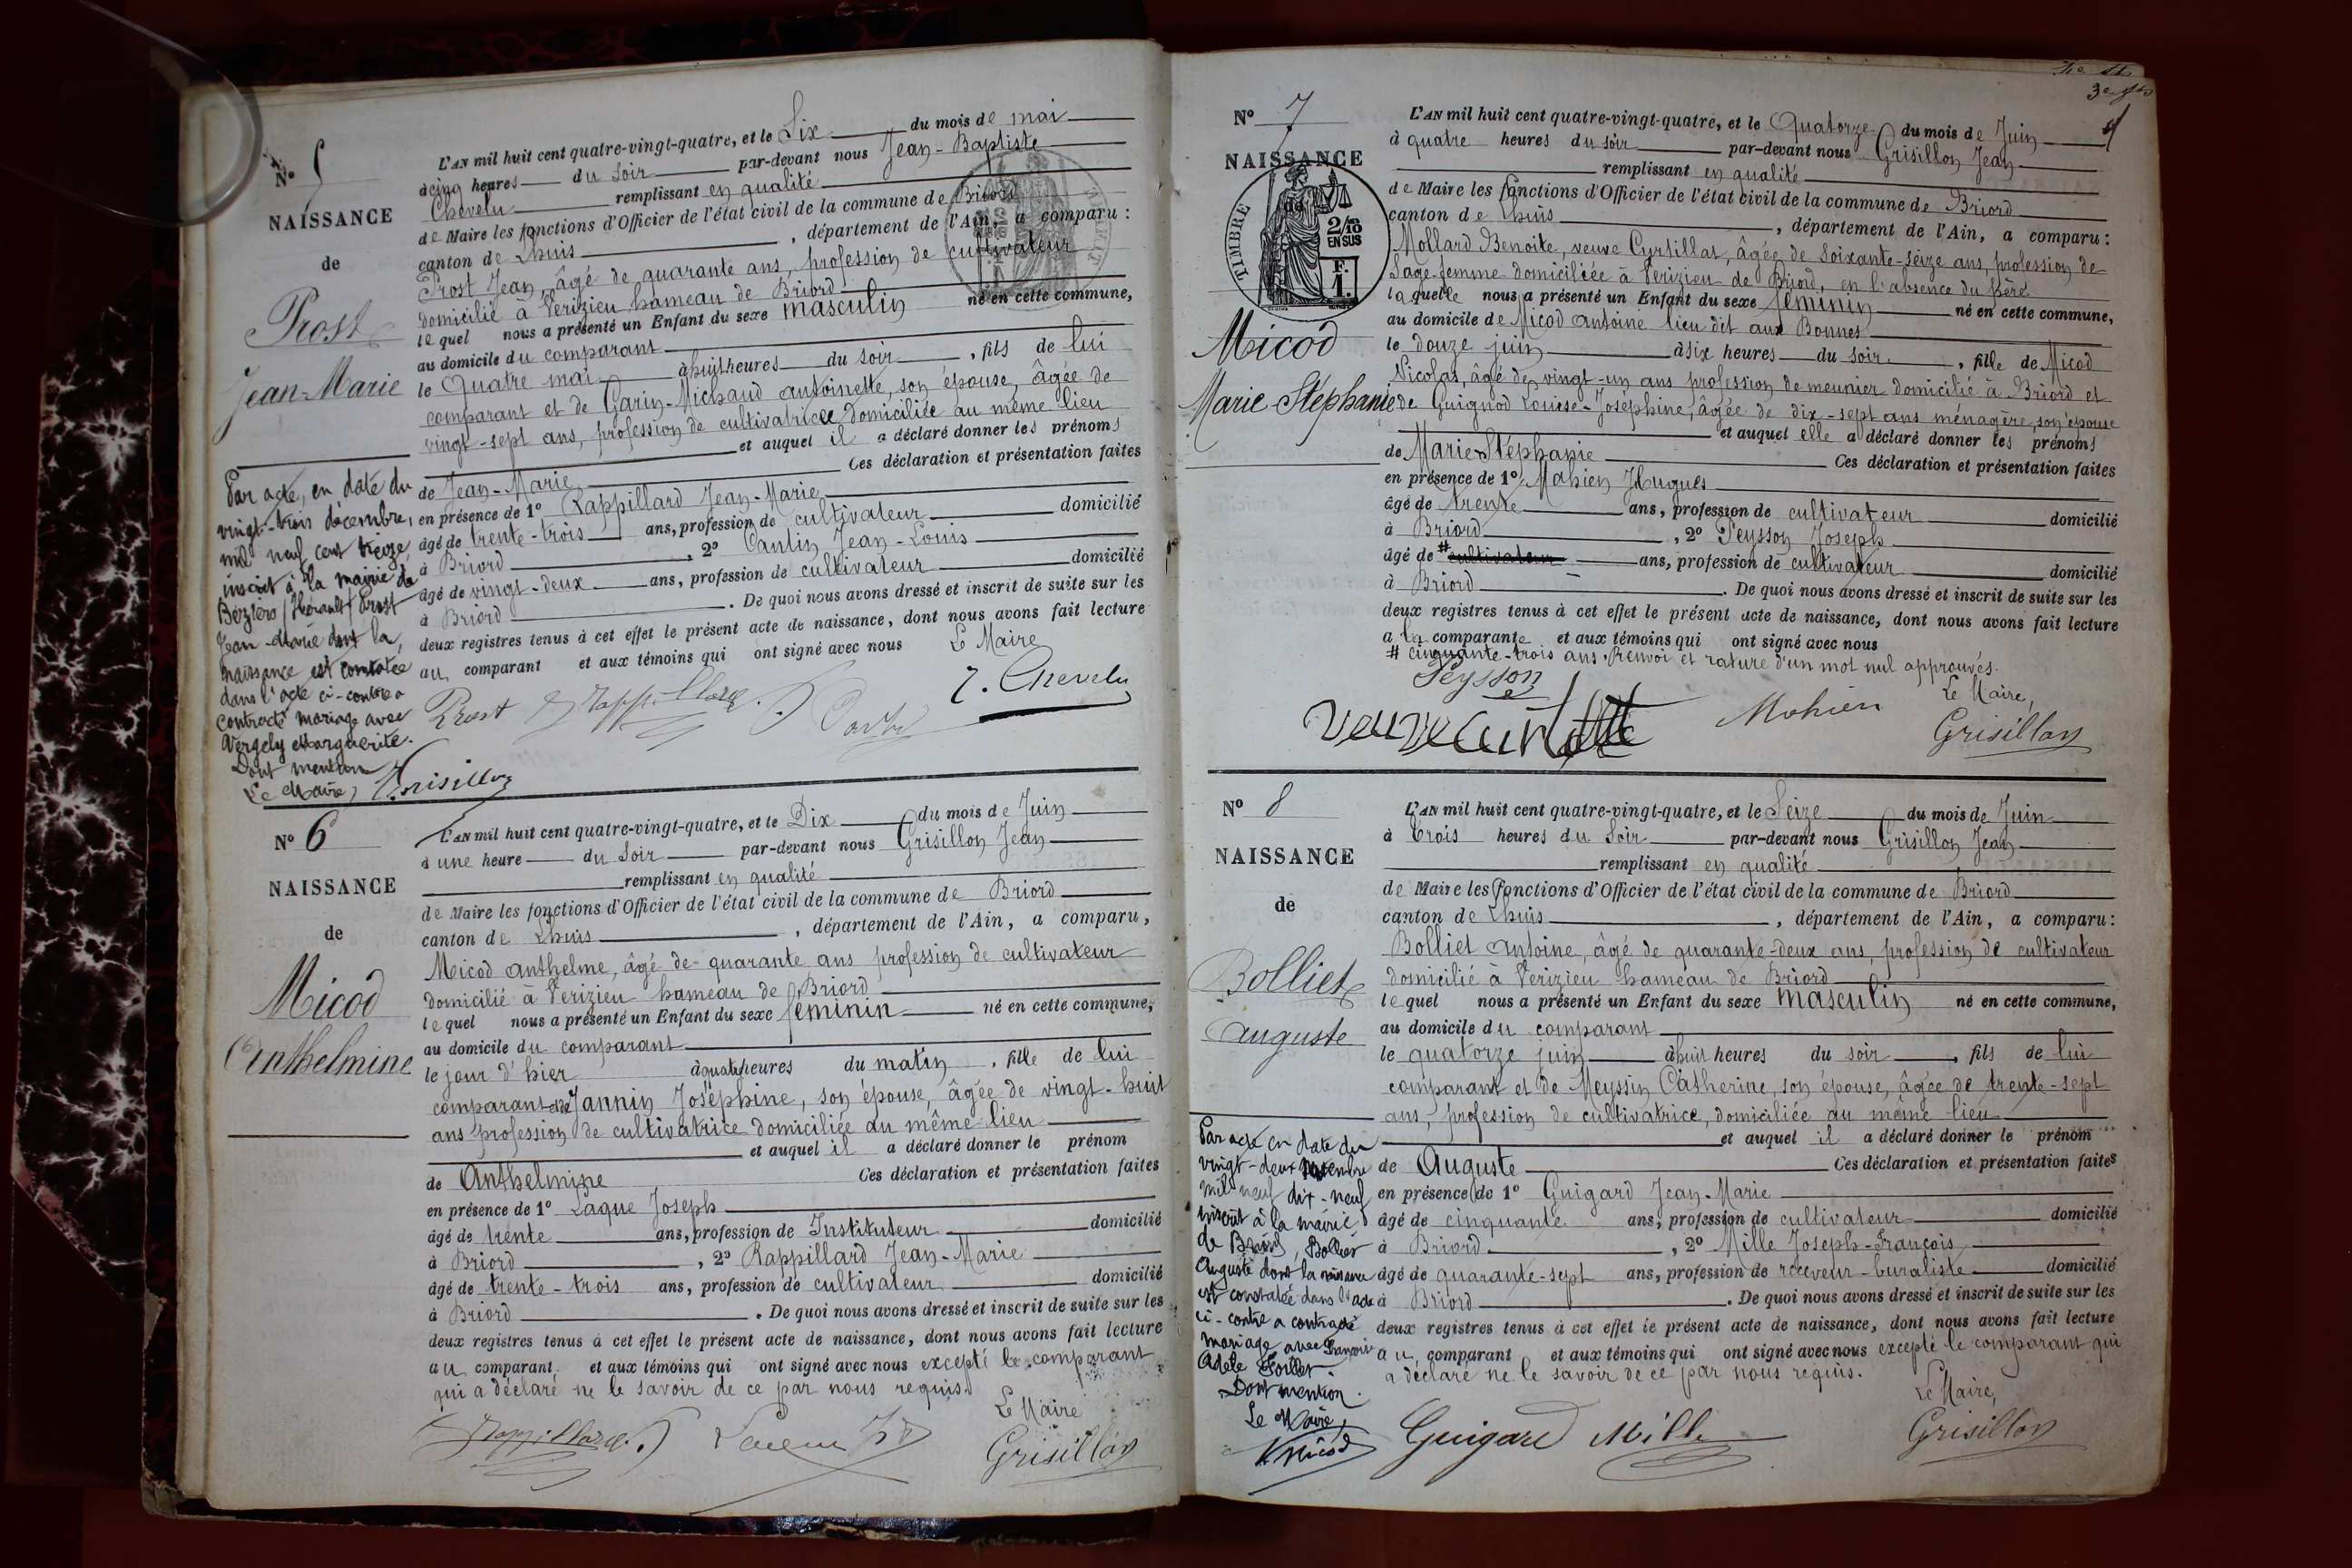 N° 5
NAISSANCE
de
Prost
Jean-Marie
L'AN mil huit cent quatre-vingt-quatre, et le Six du mois de mai
à cinq heures du soir par-devant nous Jean-Baptiste
Chevelu remplissant en qualité
de Maire les fonctions d'Officier de l'état civil de la commune de Briord
canton de Lhuis, département de l'Ain, a comparu :
Prost Jean, âgé de quarante ans, profession de cultivateur
domicilié à Verizieu hameau de Briord
lequel nous a présenté un Enfant du sexe masculin né en cette commune,
au domicile du comparant
le Quatre mai à huit heures du soir, fils de lui
comparant et de Garin-Michaud antoinette, son épouse, âgée de
vingt-sept ans, profession de cultivatrice domiciliée au même lieu
et auquel il a déclaré donner les prénoms
de Jean-Marie Ces déclaration et présentation faites
en présence de 1° Rappillard Jean-Marie
âgé de trente-trois ans, profession de cultivateur domicilié
à Briord, 2° Cantin Jean-Louis
âgé de vingt-deux ans, profession de cultivateur domicilié
à Briord. De quoi nous avons dressé et inscrit de suite sur les
deux registres tenus à cet effet le présent acte de naissance, dont nous avons fait lecture
au comparant et aux témoins qui ont signé avec nous Le Maire
Prost Rappillard J. Chevelu
Par acte, en date du
vingt-trois décembre,
mil neuf cent treize
inscrit à la mairie de
Béziers (Hérault) Prost
Jean-Marie dont la
naissance est constatée
dans l'acte ci-contre a
contracté mariage avec
Vergely Marguerite.
Dont mention
Le Maire, Grisillon
N° 6
NAISSANCE
de
Micod
Anthelmine
L'AN mil huit cent quatre-vingt-quatre, et le Dix du mois de Juin
à une heure du soir par-devant nous Grisillon Jean
remplissant en qualité
de Maire les fonctions d'Officier de l'état civil de la commune de Briord
canton de Lhuis, département de l'Ain, a comparu,
Micod anthelme, âgé de quarante ans profession de cultivateur
domicilié à Verizieu hameau de Briord
lequel nous a présenté un Enfant du sexe féminin né en cette commune,
au domicile du comparant
le jour d'hier à quatre heures du matin, fille de lui
comparant et de Jannin Joséphine, son épouse, âgée de vingt-huit
ans profession de cultivatrice domiciliée au même lieu
et auquel il a déclaré donner le prénom
de Anthelmine Ces déclaration et présentation faites
en présence de 1° Laque Joseph
âgé de trente ans, profession de Instituteur domicilié
à Briord, 2° Rappillard Jean-Marie
âgé de trente-trois ans, profession de cultivateur domicilié
à Briord. De quoi nous avons dressé et inscrit de suite sur les
deux registres tenus à cet effet le présent acte de naissance, dont nous avons fait lecture
au comparant et aux témoins qui ont signé avec nous excepté le comparant
qui a déclaré ne le savoir de ce par nous requis.
Le Maire
Rappillard Grisillon
3e
N° 7
NAISSANCE
de
TIMBRE
2/10
EN SUS
F.
1.
Micod
Marie Stéphanie
L'AN mil huit cent quatre-vingt-quatre, et le Quatorze du mois de Juin
à quatre heures du soir par-devant nous Grisillon Jean
remplissant en qualité
de Maire les fonctions d'Officier de l'état civil de la commune de Briord
canton de Lhuis, département de l'Ain, a comparu :
Mollard Benoite, veuve Cyrtillat, âgée de Soixante-seize ans, profession de
Sage-femme domiciliée à Verizieu de Briord, en l'absence du père
laquelle nous a présenté un Enfant du sexe féminin né en cette commune,
au domicile de Micod antoine lieu dit aux Bonnes
le douze juin à six heures du soir, fille de Micod
Nicolas, âgé de vingt-un ans profession de meunier domicilié à Briord et
de Guignod Louise-Joséphine, âgée de dix-sept ans ménagère, son épouse
et auquel elle a déclaré donner les prénoms
de Marie Stéphanie Ces déclaration et présentation faites
en présence de 1° Mahien Hugues
âgé de trente ans, profession de cultivateur domicilié
à Briord, 2° Peysson Joseph
âgé de # cultivateur ans, profession de cultivateur domicilié
à Briord. De quoi nous avons dressé et inscrit de suite sur les
deux registres tenus à cet effet le présent acte de naissance, dont nous avons fait lecture
a la comparante et aux témoins qui ont signé avec nous
# cinquante-trois ans. Renvoi et rature d'un mot nul approuvés.
Peysson Le Maire,
veuve Mahien Grisillon
N° 8
NAISSANCE
de
Bolliet
Auguste
L'AN mil huit cent quatre-vingt-quatre, et le Seize du mois de Juin
à trois heures du soir par-devant nous Grisillon Jean
remplissant en qualité
de Maire les fonctions d'Officier de l'état civil de la commune de Briord
canton de Lhuis, département de l'Ain, a comparu :
Bolliet Antoine, âgé de quarante-deux ans, profession de cultivateur
domicilié à Verizieu hameau de Briord
lequel nous a présenté un Enfant du sexe masculin né en cette commune,
au domicile du comparant
le quatorze juin à huit heures du soir, fils de lui
comparant et de Meyssin Catherine, son épouse, âgée de trente-sept
ans, profession de cultivatrice, domiciliée au même lieu
et auquel il a déclaré donner le prénom
de Auguste Ces déclaration et présentation faites
en présence de 1° Guigard Jean-Marie
âgé de cinquante ans, profession de cultivateur domicilié
à Briord, 2° Mille Joseph-François
âgé de quarante-sept ans, profession de receveur-buraliste domicilié
à Briord. De quoi nous avons dressé et inscrit de suite sur les
deux registres tenus à cet effet le présent acte de naissance, dont nous avons fait lecture
au comparant et aux témoins qui ont signé avec nous excepté le comparant qui
a déclaré ne le savoir de ce par nous requis.
Le Maire,
Guigard Mille Grisillon
Par acte en date du
vingt-deux novembre
mil neuf dix-neuf
inscrit à la mairie
de Briord, Bolliet
Auguste dont la naissance
est constatée dans l'acte
ci-contre a contracté
mariage avec
Adèle
Dont mention.
Le Maire,
Micod